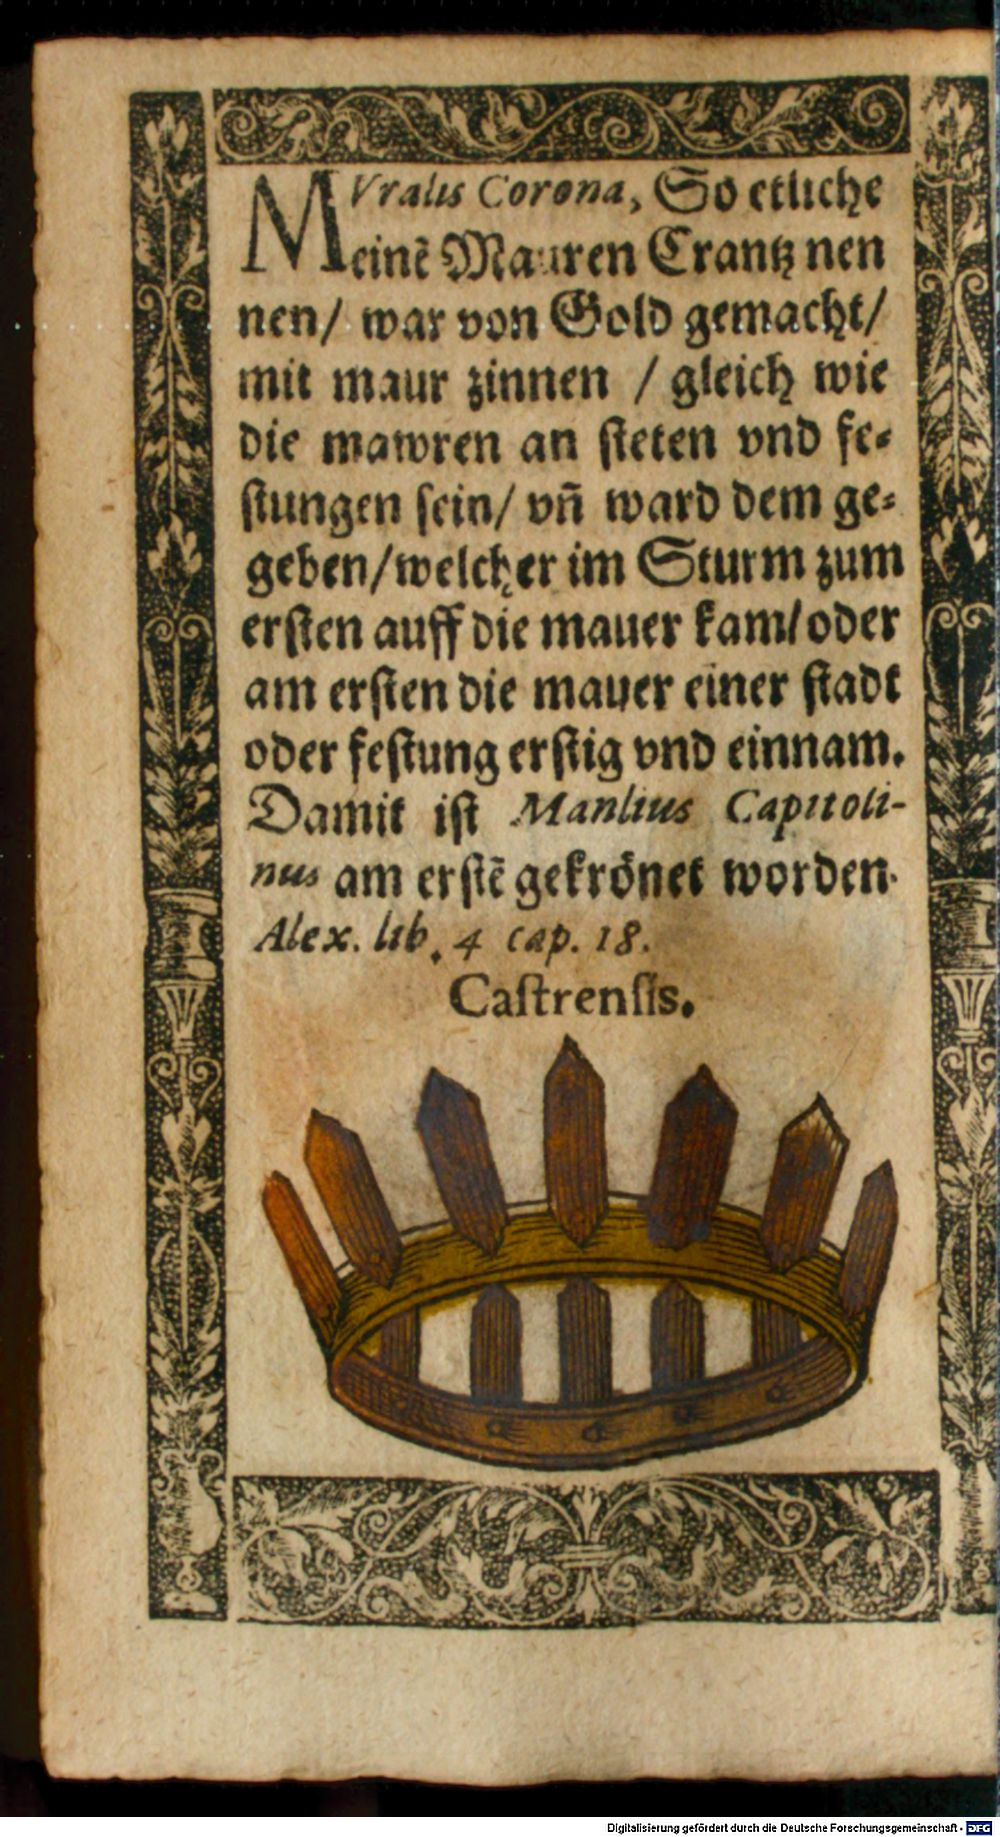 MVralis Corona, So etliche
einē Mauren Crantz nen
nen/ war von Gold gemacht/
mit maur zinnen / gleich wie
die mawren an steten vnd fe⸗
stungen sein/ vñ ward dem ge⸗
geben/welcher im Sturm zum
ersten auff die mauer kam/oder
am ersten die mauer einer stadt
oder festung erstig vnd einnam.
Damit ist Manlius Capitoli-
nus am erstē gekrönet worden.
Alex. lib. 4 cap. 18.
Castrensis.
Digitalisierung gefördert durch die Deutsche Forschungsgemeinschaft - DFG